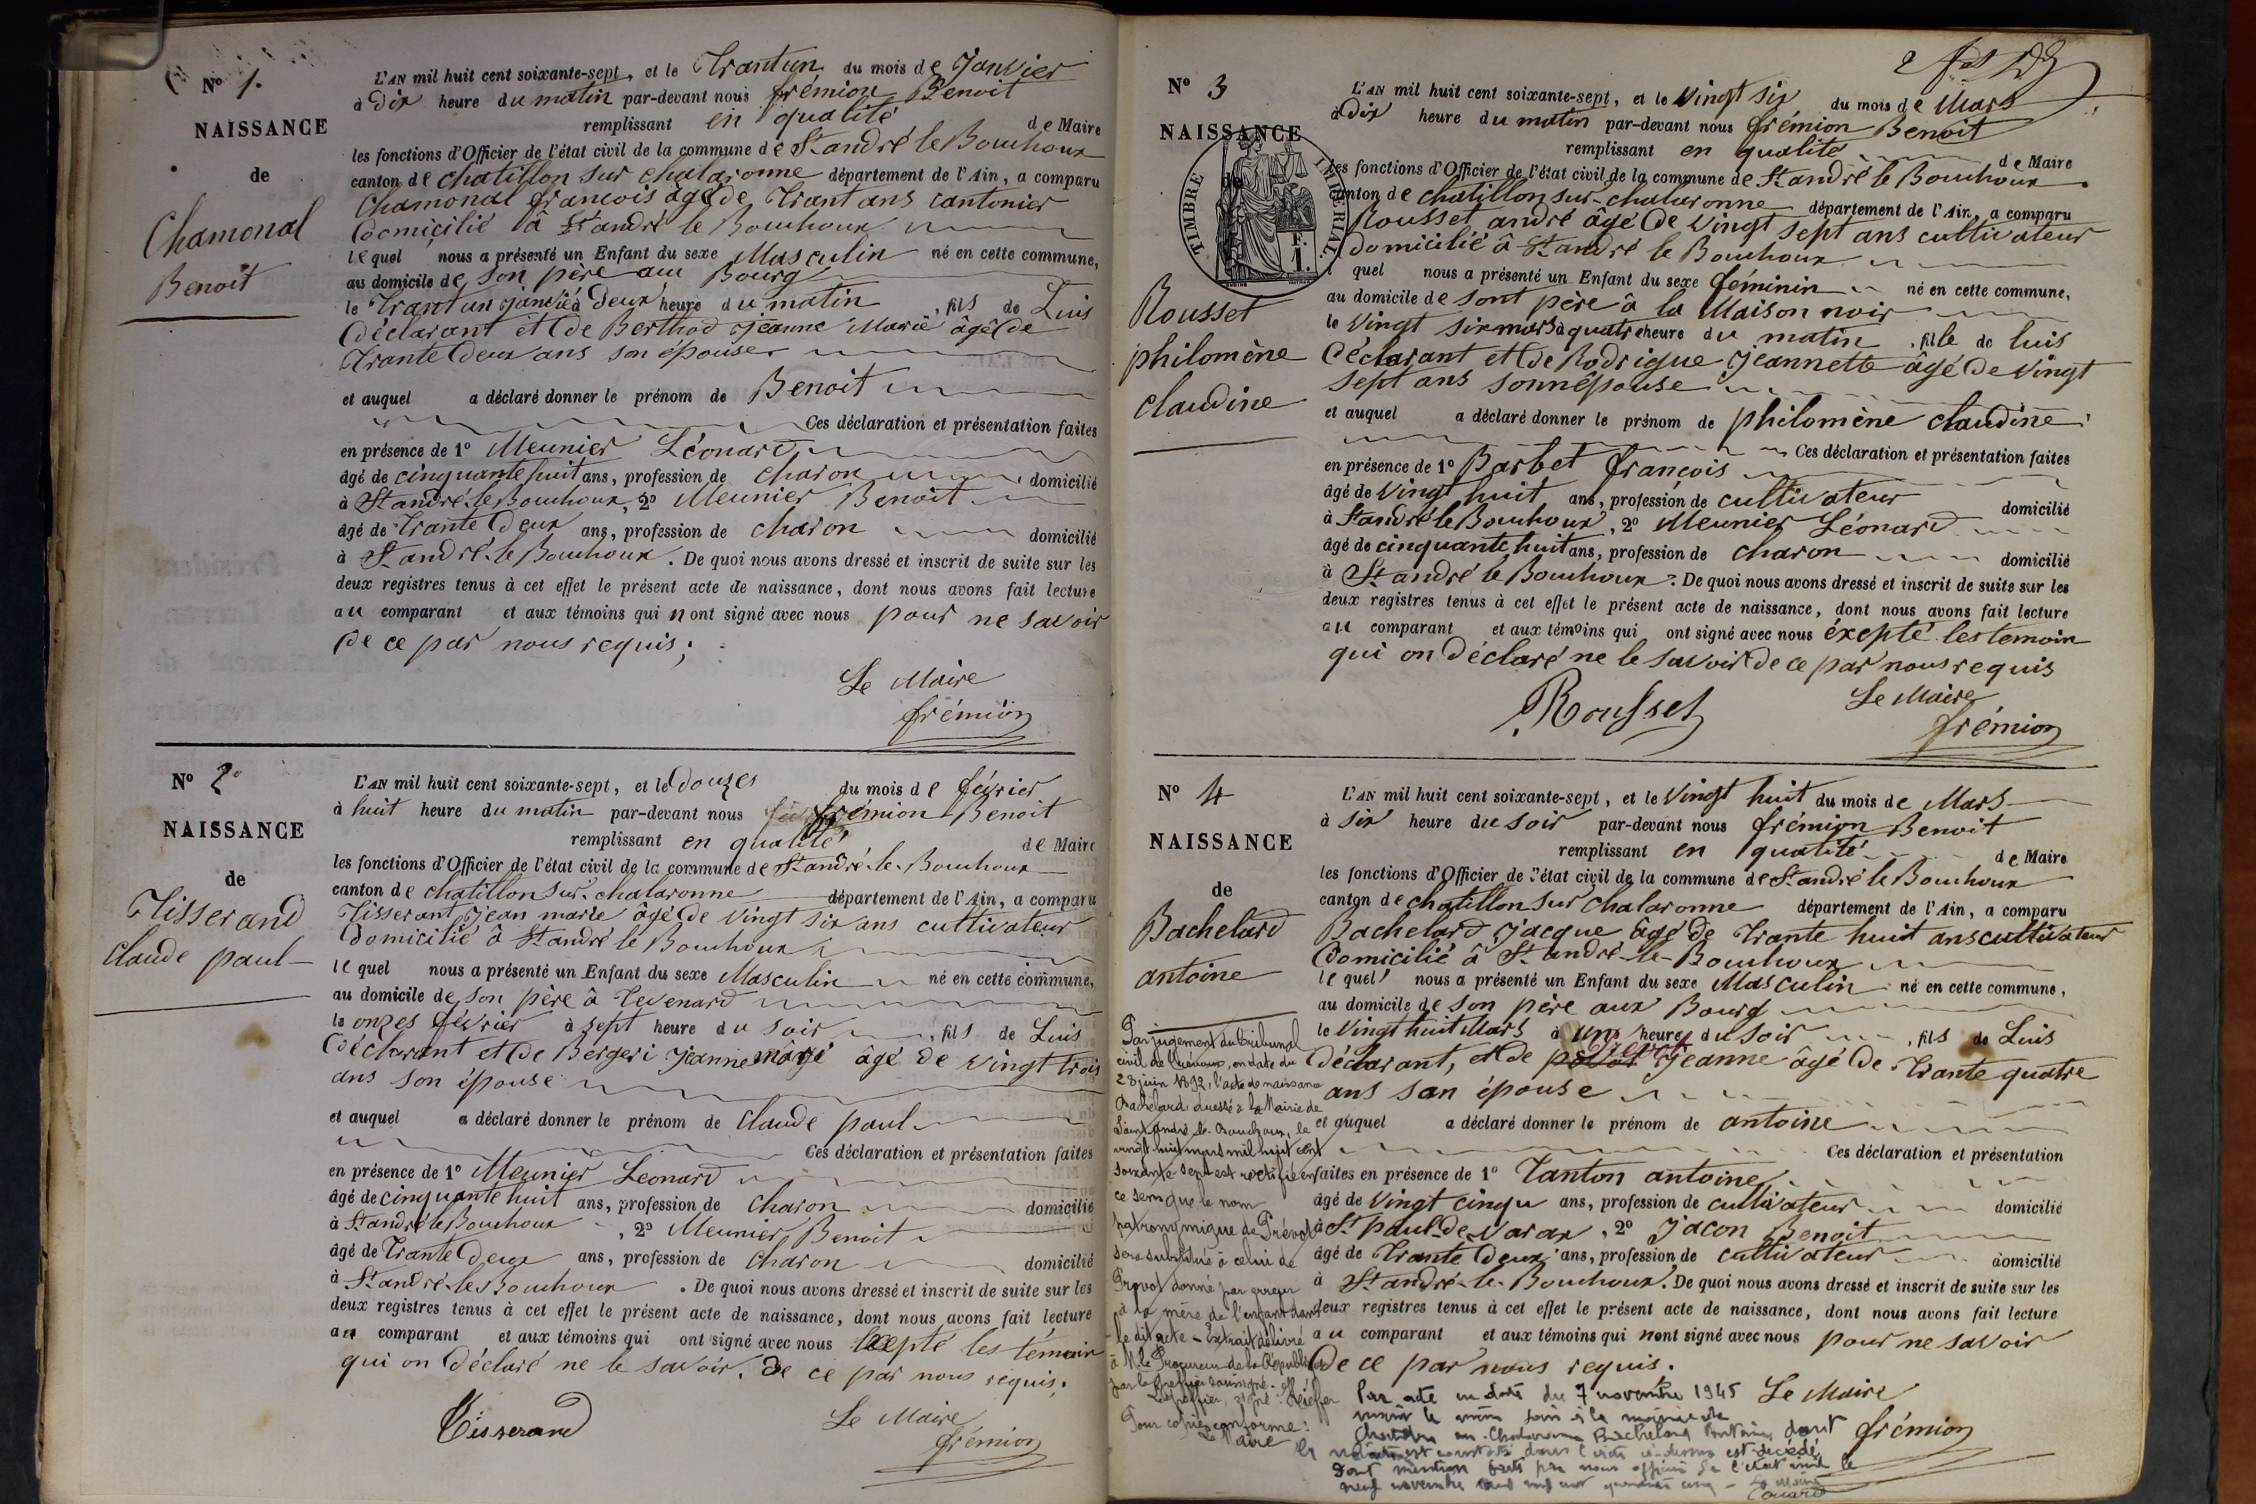 N° 1.
NAISSANCE
de
Chamonal
Benoit
L'AN mil huit cent soixante-sept, et le Trantun du mois de Janvier
à Dix heure du matin par-devant nous frémion Benoit
remplissant en qualité de Maire
les fonctions d'Officier de l'état civil de la commune de St andré le Bouchoux
canton de chatillon sur chalaronne département de l'Ain, a comparu
Chamonal francois âgé de Trant ans cantonier
Domicilié â St andré le Bouchoux
lequel nous a présenté un Enfant du sexe Masculin né en cette commune,
au domicile de son père au Bourg
le Trant un janvié à Deux heure du matin, fils de Luis
Déclarant et De Berthod Jeanne Marie âgé de
Trante Deux ans son épouse
et auquel a déclaré donner le prénom de Benoit
Ces déclaration et présentation faites
en présence de 1° Meunier Léonard
âgé de cinquante huit ans, profession de charon domicilié
à St andré le Bouchoux, 2° Meunier Benoit
âgé de Trante Deux ans, profession de charon domicilié
à St andré le Bouchoux. De quoi nous avons dressé et inscrit de suite sur les
deux registres tenus à cet effet le présent acte de naissance, dont nous avons fait lecture
au comparant et aux témoins qui nont signé avec nous pour ne savoir
De ce par nous requis;
Le Maire
frémion
N° 2°
NAISSANCE
de
Tisserand
claude paul
L'AN mil huit cent soixante-sept, et le Douzes du mois de février
à huit heure du matin par-devant nous frémion Benoit
remplissant en qualité de Maire
les fonctions d'Officier de l'état civil de la commune de St andré-le-Bouchoux
canton de chatillon sur chalaronne département de l'Ain, a comparu
Tisserant Jean marie âgé De vingt six ans cultivateur
Domicilié â St andré le Bouchoux
lequel nous a présenté un Enfant du sexe Masculin né en cette commune,
au domicile de son père â Tevenard
le onzes février à sept heure du soir, fils de Luis
Déclarant et De Bergeri Jeanne marie âgé de vingt trois
ans son épouse
et auquel a déclaré donner le prénom de Claude paul
Ces déclaration et présentation faites
en présence de 1° Meunier Léonard
âgé de cinquante huit ans, profession de charon domicilié
à St andré le Bouchoux, 2° Meunier Benoit
âgé de Trante Deux ans, profession de charon domicilié
à St andré-le-Bouchoux. De quoi nous avons dressé et inscrit de suite sur les
deux registres tenus à cet effet le présent acte de naissance, dont nous avons fait lecture
au comparant et aux témoins qui ont signé avec nous les témoin
qui on Déclaré ne le savoir. De ce par nous requis.
Tisserand
Le Maire
frémion
N° 3
NAISSANCE
de
TIMBRE IMPÉRIAL
Rousset
philomène
claudine
L'AN mil huit cent soixante-sept, et le vingt six du mois de Mars
à Dix heure du matin par-devant nous frémion Benoit
remplissant en qualité de Maire
les fonctions d'Officier de l'état civil de la commune de St andré le Bouchoux
canton de chatillon sur chalaronne département de l'Ain, a comparu
Rousset andré âgé De vingt sept ans cultivateur
Domicilié â St andré le Bouchoux
quel nous a présenté un Enfant du sexe féminin né en cette commune,
au domicile de sont père â la Maison noir
le vingt six mars à quatre heure du matin, fille de luis
Déclarant et De Rodrigue Jeannette âgé De vingt
sept ans sonnépouse
et auquel a déclaré donner le prénom de philomène claudine
Ces déclaration et présentation faites
en présence de 1° Barbet françois
âgé de vingt huit ans, profession de cultivateur domicilié
à St andré le Bouchoux, 2° Meunier Léonard
âgé de cinquante huit ans, profession de charon domicilié
à St andré le Bouchoux. De quoi nous avons dressé et inscrit de suite sur les
deux registres tenus à cet effet le présent acte de naissance, dont nous avons fait lecture
au comparant et aux témoins qui ont signé avec nous éxcepté les temoin
qui on Déclaré ne le savoir De ce par nous requis
Rousset
Le Maire
frémion
N° 4
NAISSANCE
de
Bachelard
antoine
L'AN mil huit cent soixante-sept, et le vingt huit du mois de Mars
à six heure du soir par-devant nous frémion Benoit
remplissant en qualité de Maire
les fonctions d'Officier de l'état civil de la commune de St andré le Bouchoux
canton de chatillon sur chalaronne département de l'Ain, a comparu
Bachelard Jacque âgé De Trante huit ans cultivateur
Domicilié â St andré-le-Bouchoux
lequel nous a présenté un Enfant du sexe Masculin né en cette commune,
au domicile de son père aux Bourg
le vingt huit Mars à un heure du soir, fils de Luis
Déclarant, et De Jeanne âgé De Trante quatre
ans son épouse
et auquel a déclaré donner le prénom de antoine
Ces déclaration et présentation
faites en présence de 1° Tanton antoine
âgé de vingt cinqu ans, profession de cultivateur domicilié
à St paul-De-varax, 2° Jacon Benoit
âgé de Trante Deux ans, profession de cultivateur domicilié
à St andré-le-Bouchoux. De quoi nous avons dressé et inscrit de suite sur les
deux registres tenus à cet effet le présent acte de naissance, dont nous avons fait lecture
au comparant et aux témoins qui nont signé avec nous pour ne savoir
De ce par nous requis.
Le Maire
frémion
Par jugement du Tribunal
civil de Trévoux, en date du
28 juin 1892, l'acte de naissance
Bachelard dressé à la Mairie de
Saint André-le-Bouchoux, le
vingt huit mars mil huit cent
soixante sept est rectifié en
ce sens que le nom
patronymique de Prévot
sera substitué à celui de
Provot donné par erreur
à la mère de l'enfant dans
le dit acte – Extrait délivré
à M. le Procureur de la République
par le greffier soussigné.
Le greffier, signé:
Pour copie conforme:
Le Maire
Par acte en date du 7 novembre 1945
à la mairie de
Chatillon sur Chalaronne Bachelard Antoine dont
la naissance est constatée dans l'acte ci-dessus est décédé
Dont mention faite par nous officier de l'état civil le
neuf novembre mil neuf cent quarante cinq – Le Maire